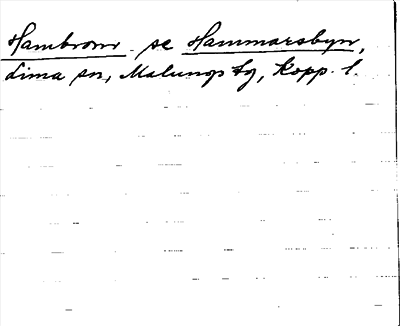 Hambronr se Hammarsbyn,
Lima sn, Malungs tg, Kopp. l.